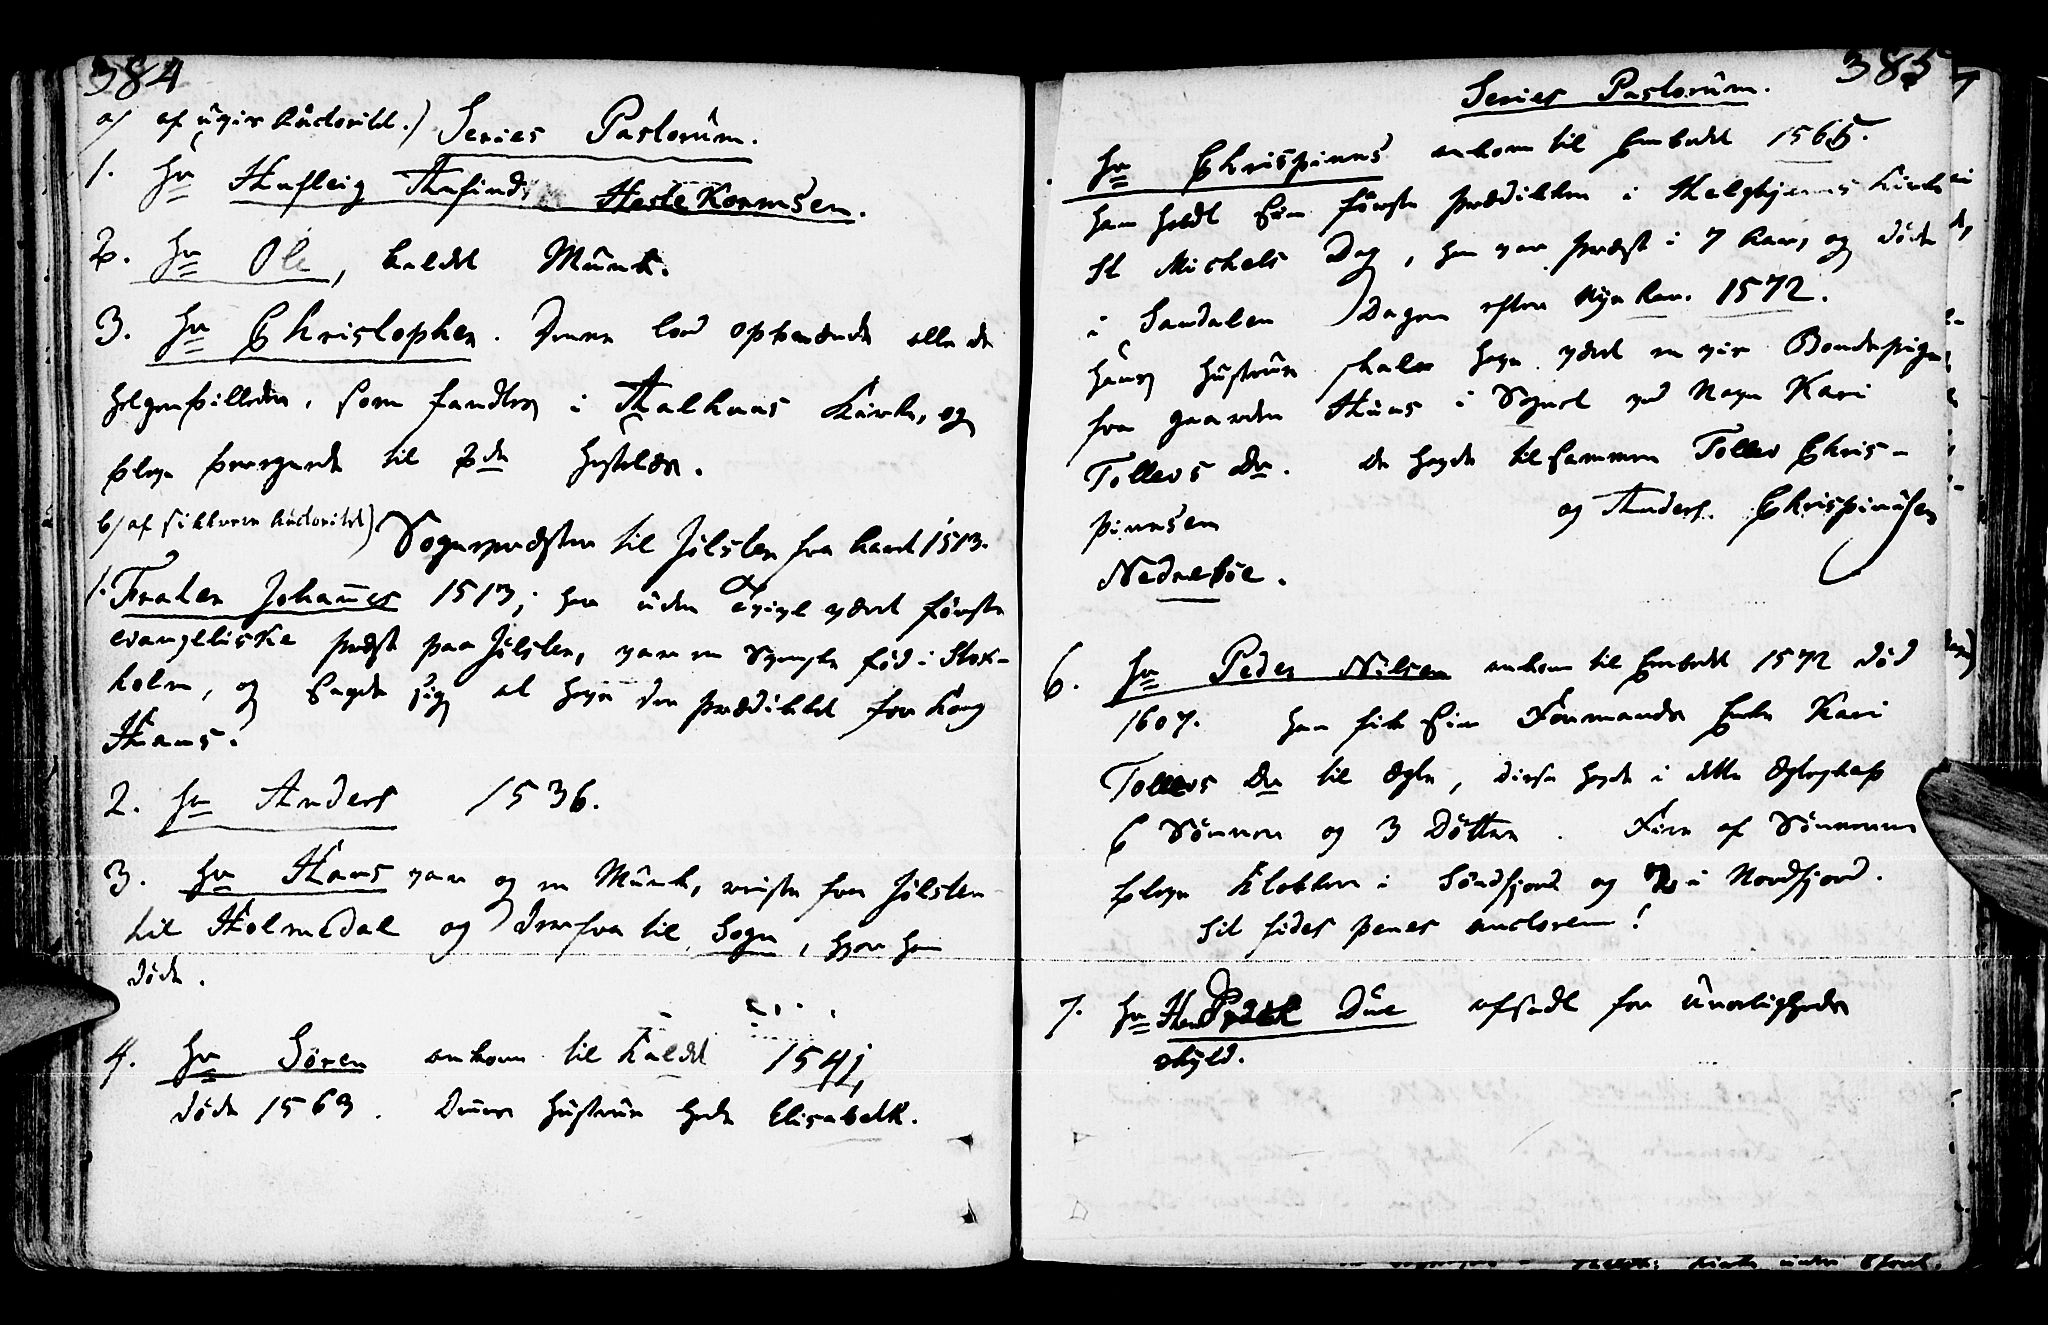 384
a) af uvis Auctoritet.) Series Pastorum.
1. Hr Aufleig Aufinds HesteKornsen.
2. Hr Ole, kaldet Munk.
3. Hr Christopher. Denne lod opbrænde alle de
Helgenbilleder, som fandtes i Aalhuus Kirke, og
blev forvandlet til
b) af sikkrere Auctoritet) Sognepræster til Jølster fra Aaret 1513.
1. Frater Johannes 1513; har uden Tvivl været første
evangeliske Præst paa Jølster, var en Svensk fød i Stok-
holm, og sagde sig at have der prædikket for Kong
Hans.
2. Hr Anders 1536.
3. Hr Hans var og en Munk, reiste fra Jølster
til Holmedal og derfra til Sogn, hvor han
døde.
4. Hr Sören ankom til Kaldet 1541,
døde 1563. Dennes Hustrue hedte Elisabeth.
385
Series Pastorum.
Hr Chrispinus ankom til Embedet 1565.
Han holdt sin første Prædikken i Helgheims Kirke
St Michels Dag, han var Præst i 7 Aar, og døde
i Sandalen Dagen efter Nyt Aar. 1572.
Hans Hustrue skal have været en vis Bondepige
fra Gaarden Huus i Sognet ved Navn Kari
Tollevs Dr. De havde tilsammen Tollev Chris-
pinusen og Anders Chrispinusen
Nedrebøe.
6. Hr Peder Nilsen ankom til Embedet 1572 død
1607. Han fik sin Formands Enke Kari
Tollevs Dr til Ægte, disse havde i dette Ægteskab
6 Sönner og 3 Döttre. Fire af Sönnerne
bleve Klokkere i Söndfjord og i Nordfjord.
Sit fides penes auctorem!
7. Hr Due afsadt for Uærligheds
skyld.